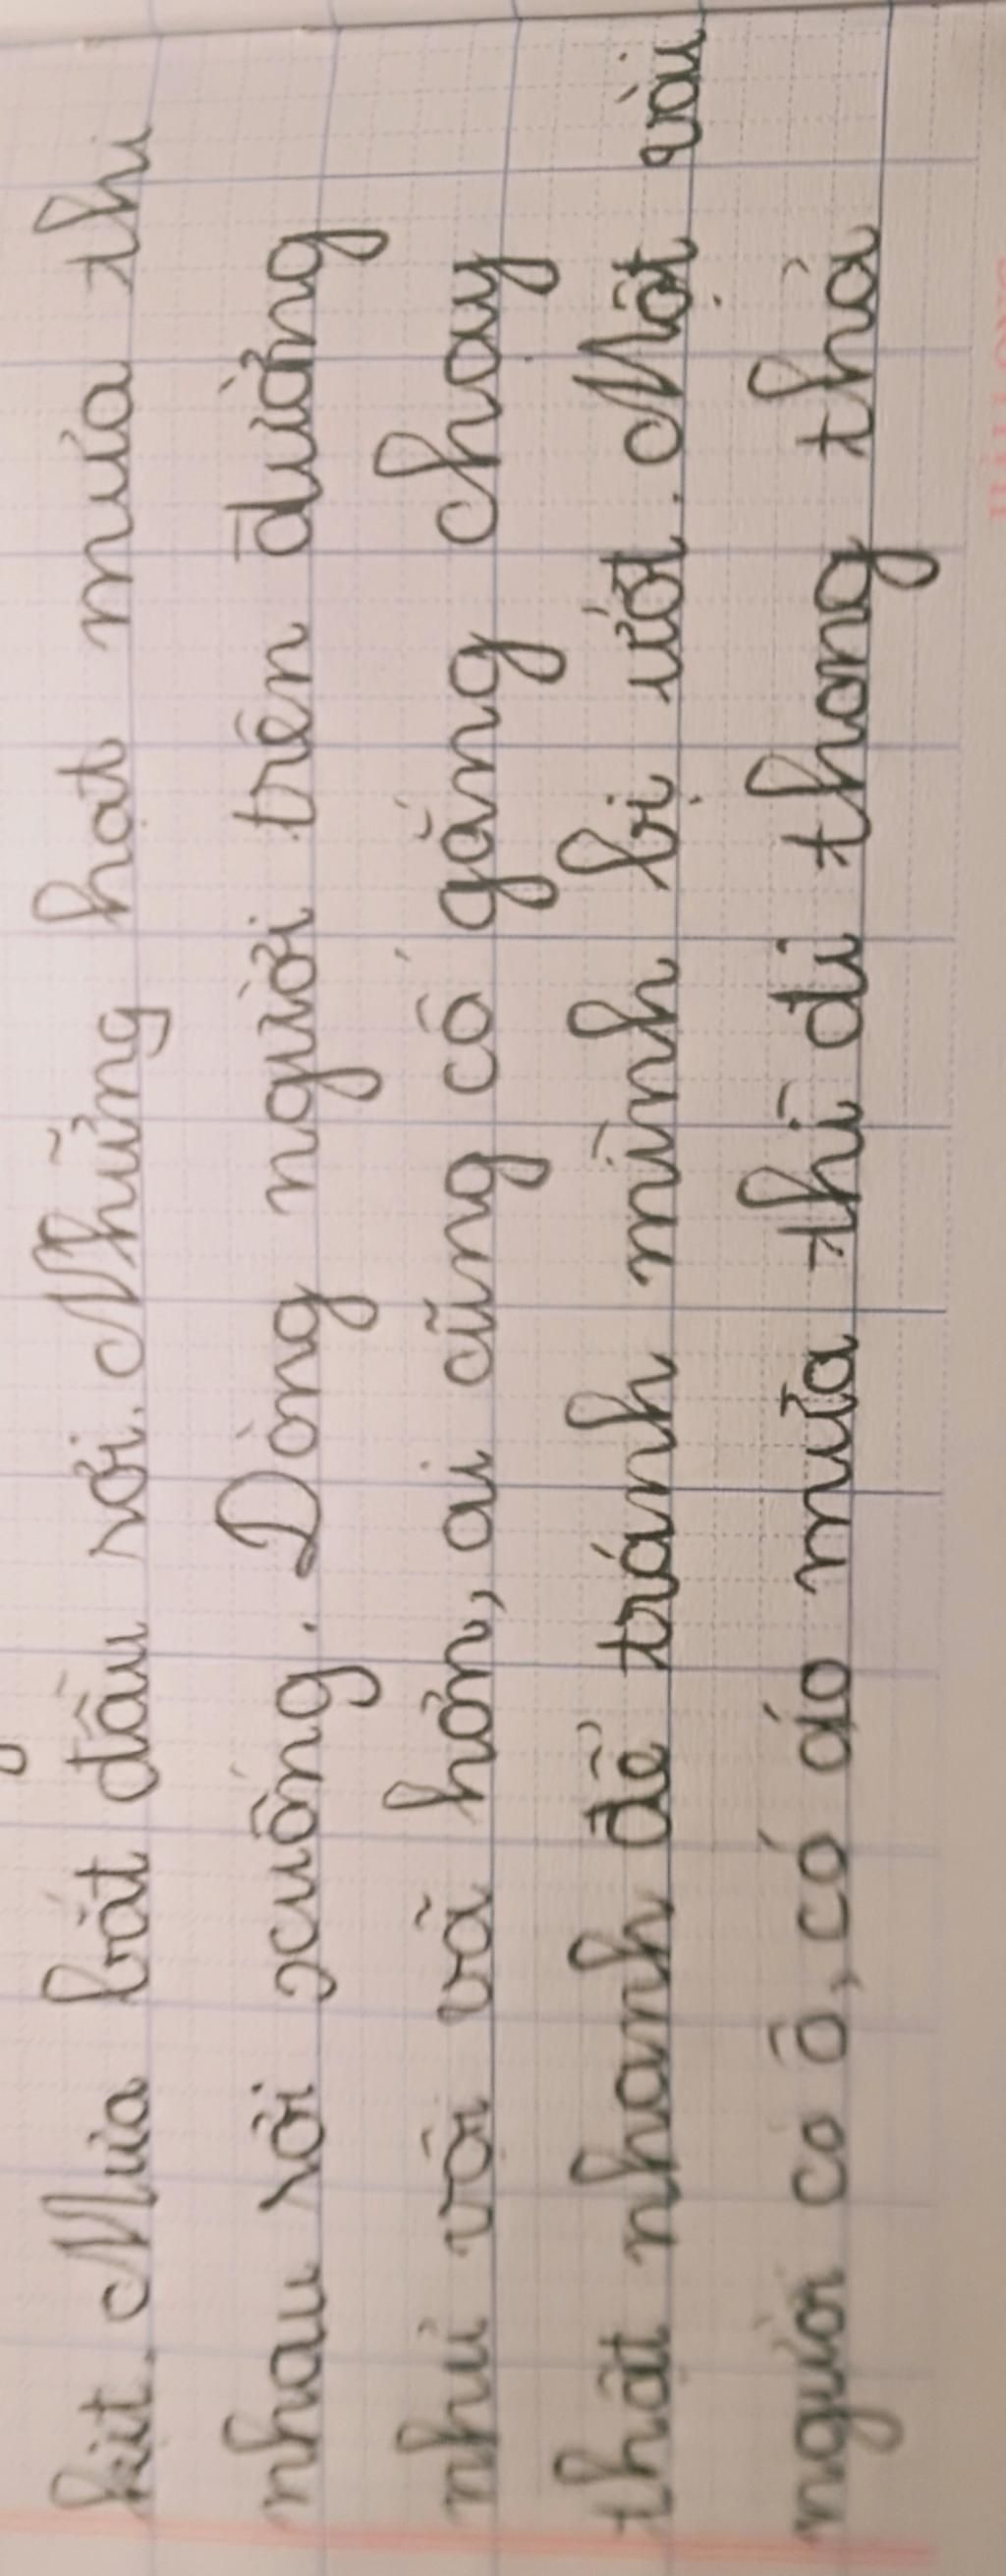 kịt. Mưa bắt đầu rơi. Những hạt mưa thi
nhau rơi xuống. Dòng người trên đường
như vội vã hơn, ai cũng cố gắng chạy
thật nhanh để tránh mình bị ướt. Một vài
người có ô, có áo mưa thì đi thong thả